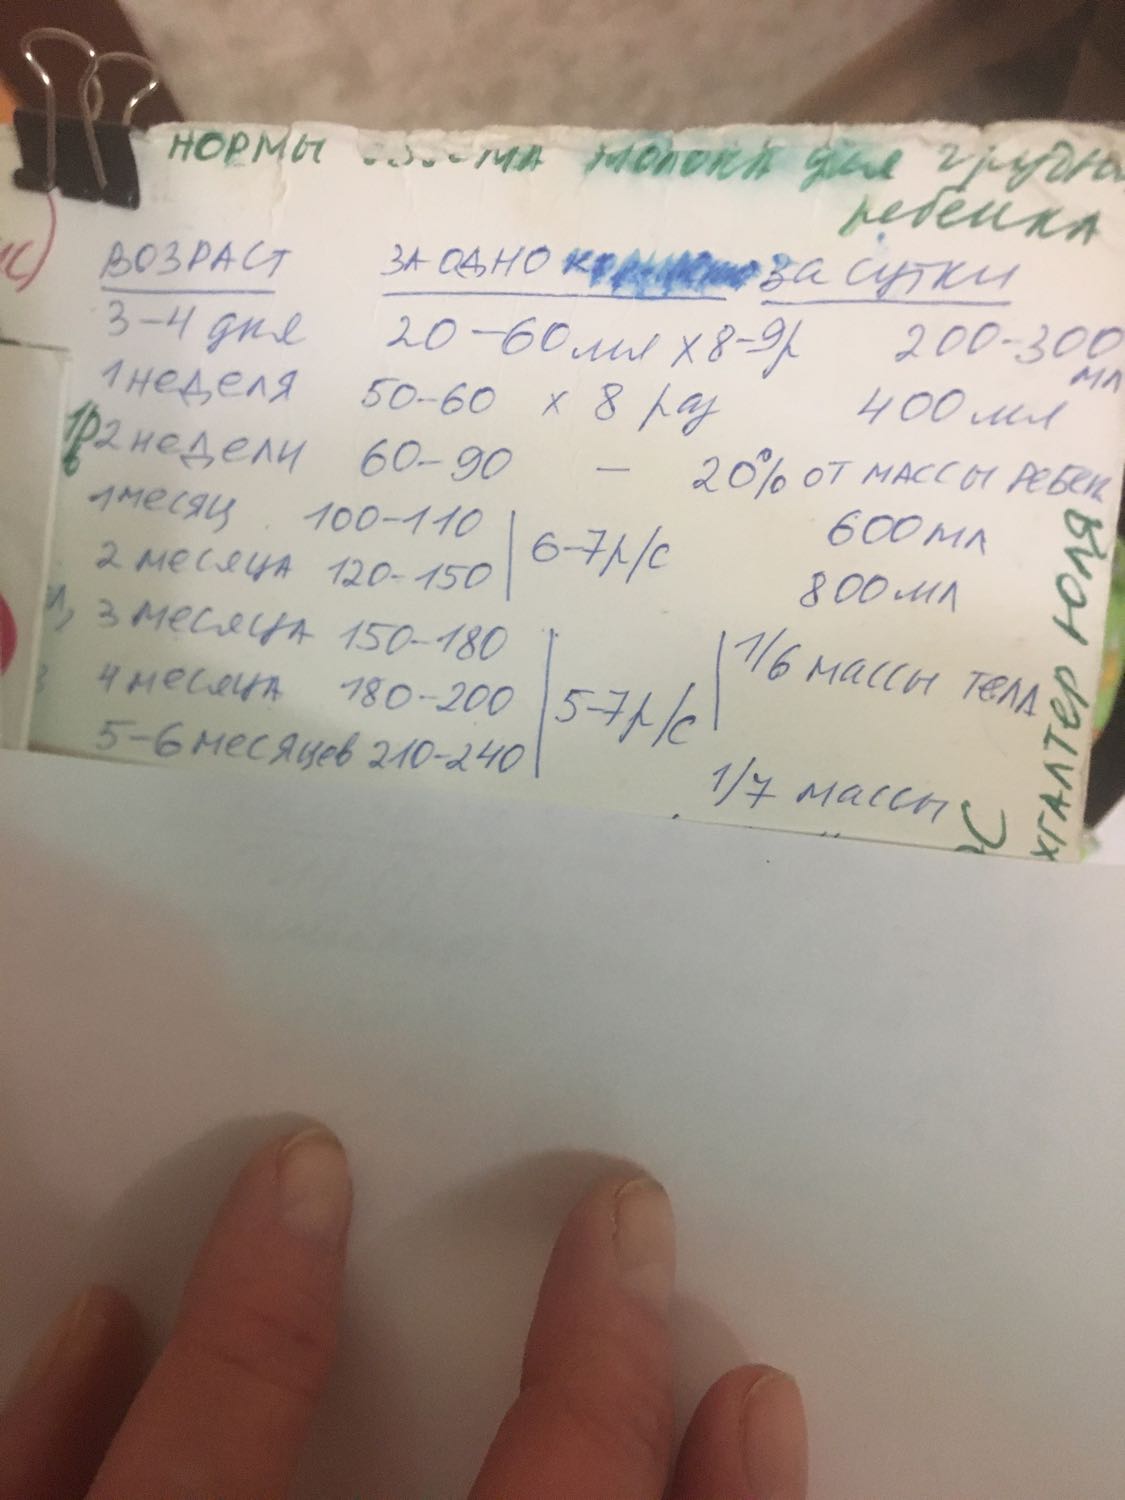 НОРМЫ МОЛОКА для
ребенка
ВОЗРАСТ ЗА ОДНО ЗА СУТКИ
3-4 дня 20-60 мл х 8-9р 200-300 мл
1 неделя 50-60 х 8 раз 400 мл
2 недели 60-90 - 20% от массы
1 месяц 100-110 6-7р/с 600 мл
2 месяца 120-150 800 мл
3 месяца 150-180 1/6 массы тела
4 месяца 180-200 5-7р/с
5-6 месяцев 210-240 1/7 массы
ЮЛЯ